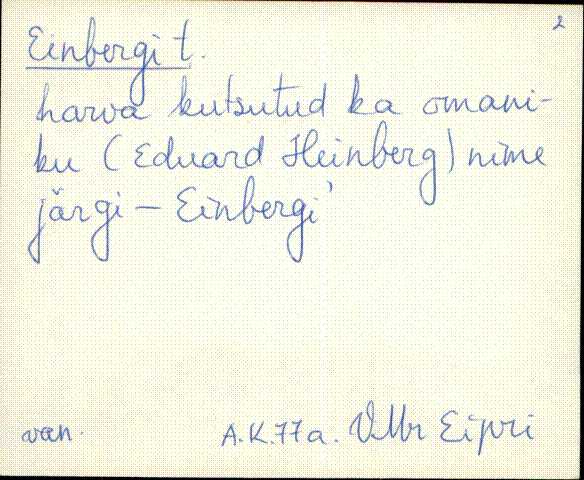 2
Einbergi t.
harva kutsutud ka omani-
ku (Eduard Heinberg) nime
järgi — Einbergi'
van.
A.K. 77 a. VMr Eipri